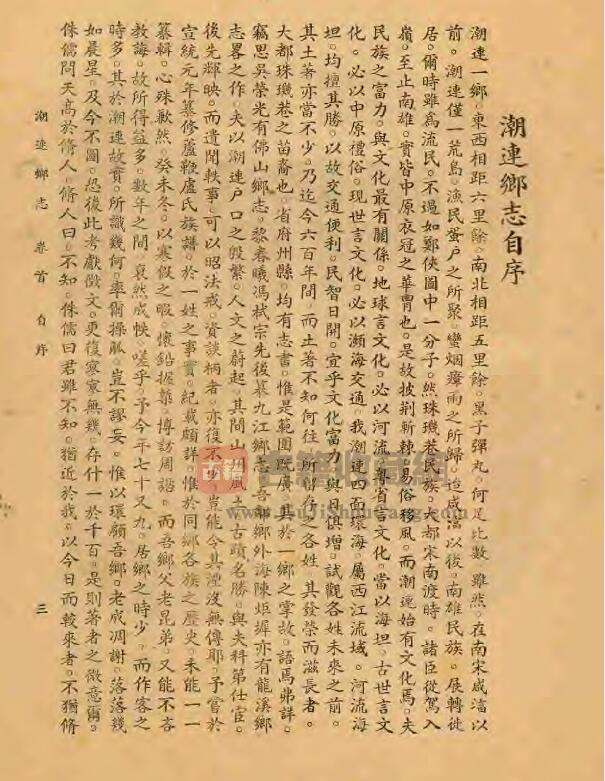 潮連鄉志自序
潮連一鄉。東西相距六里餘。南北相距五里餘。黑子彈丸。何足比數。雖然。在南宋咸淳以
前。潮連僅一荒島。漁民蜑户之所聚。蠻烟瘴雨之所歸。迨咸淳以後。南雄民族。展轉徙
居。爾時雖為流民。不過如鄭俠圖中一分子。然珠璣巷民族。大都宋南渡時。諸臣從駕入
嶺。至止南雄。實皆中原衣冠之華胄也。是故披荆斬棘。易俗移風。而潮連始有文化焉。夫
民族之富力。與文化最有關係。地球言文化。必以河流。粤省言文化。當以海坦。古世言文
化。必以中原禮俗。現世言文化。必以瀕海交通。我潮連四面環海。屬西江流域。河流海
坦。均擅其勝。以故交通便利。民智日開。宜乎文化富力。與日俱增。試觀各姓未來之前。
其土著亦當不少。乃迄今六百年間。而土著不知何往。所留存之各姓。其發榮而滋長者。
大都珠璣巷之苗裔也。省府州縣。均有志書。惟是範圍既廣。其於一鄉之掌故。語焉弗詳。
竊思吳榮光有佛山鄉志。黎春曦馮栻宗先後纂九江鄉志。吾鄰鄉外海陳炬墀亦有龍溪鄉
志畧之作。夫以潮連户口之殷繁。人文之蔚起。其間山川風土。古蹟名勝。與夫科第仕宦。
後先輝映。而遺聞軼事。可以昭法戒。資談柄者。亦復不少。豈能令其湮沒無傳耶。予嘗於
宣統元年篡修蘆鞭盧氏族譜。於一姓之事實。紀載頗詳。惟於同鄉各族之歷史。未能一一
纂輯。心殊歉然。癸未冬。以寒假之暇。懷鉛握槧。博訪周諮。而吾鄉父老昆弟。又能不吝
教誨。故所得益多。數年之間。裒然成帙。嗟乎。予今年七十又九。居鄉之時少。而作客之
時多。其於潮連故實。所識幾何。率爾操觚。豈不謬妄。惟以環顧吾鄉。老成凋謝。落落幾
如晨星。及今不圖。恐後此考獻徵文。更復寥寥無幾。存什一於千百。是則著者之微意爾。
侏儒問天高於脩人。脩人曰。不知。侏儒曰。君雖不知。猶近於我。以今日而較來者。不猶脩
潮連鄉志 卷首 自序 三
古籍收藏網
www.gujishu.com